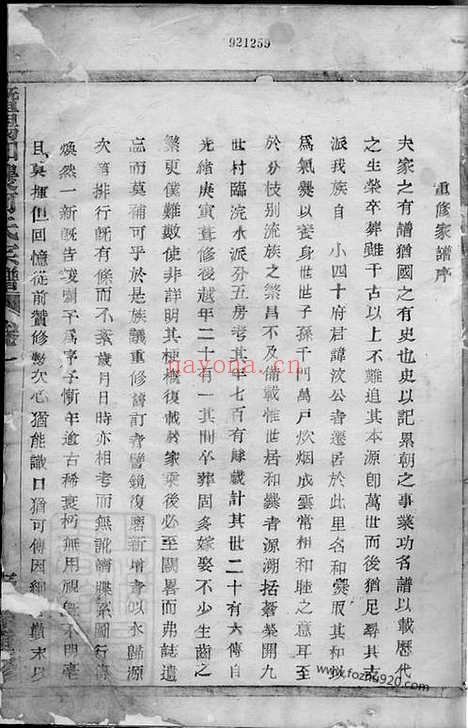 921259
重修家譜序
夫家之有譜猶國之有史也史以記累朝之事業功名譜以載歷代
之生榮卒葬雖千古以上不難追其本源卽萬世而後猶足尋其支
派我族自 小四十府君諱汶公者遷居於此里名和爨取其和以
爲氣爨以養身世世子孫千門萬戶炊烟成雲常相和睦之意耳至
於分枝別流族之繁昌不及備載惟世居和爨者源溯括蒼塋開九
世村臨浣水派分五房考其年七百有餘載計其世二十有六傳自
光緒庚寅葺修後越年二十有一其間卒葬固多嫁娶不少生齒之
繁更僕難數使非詳明其梗概復載於家乘後必至闕畧而弗誌遺
忘而莫補可乎於是族議重修譜訂者譬鏡復磨新增者以水歸源
次第排行而不紊歲月日時亦相考而無訛譜牒系圖行傳
煥然一新旣告竣囑予爲序予慚年逾古稀衰朽無用視無不開毫
且莫揮但回憶從前贊修數次心猶能識口猶可傳因細顛末以
nayona.cn
www.fozhu920.com